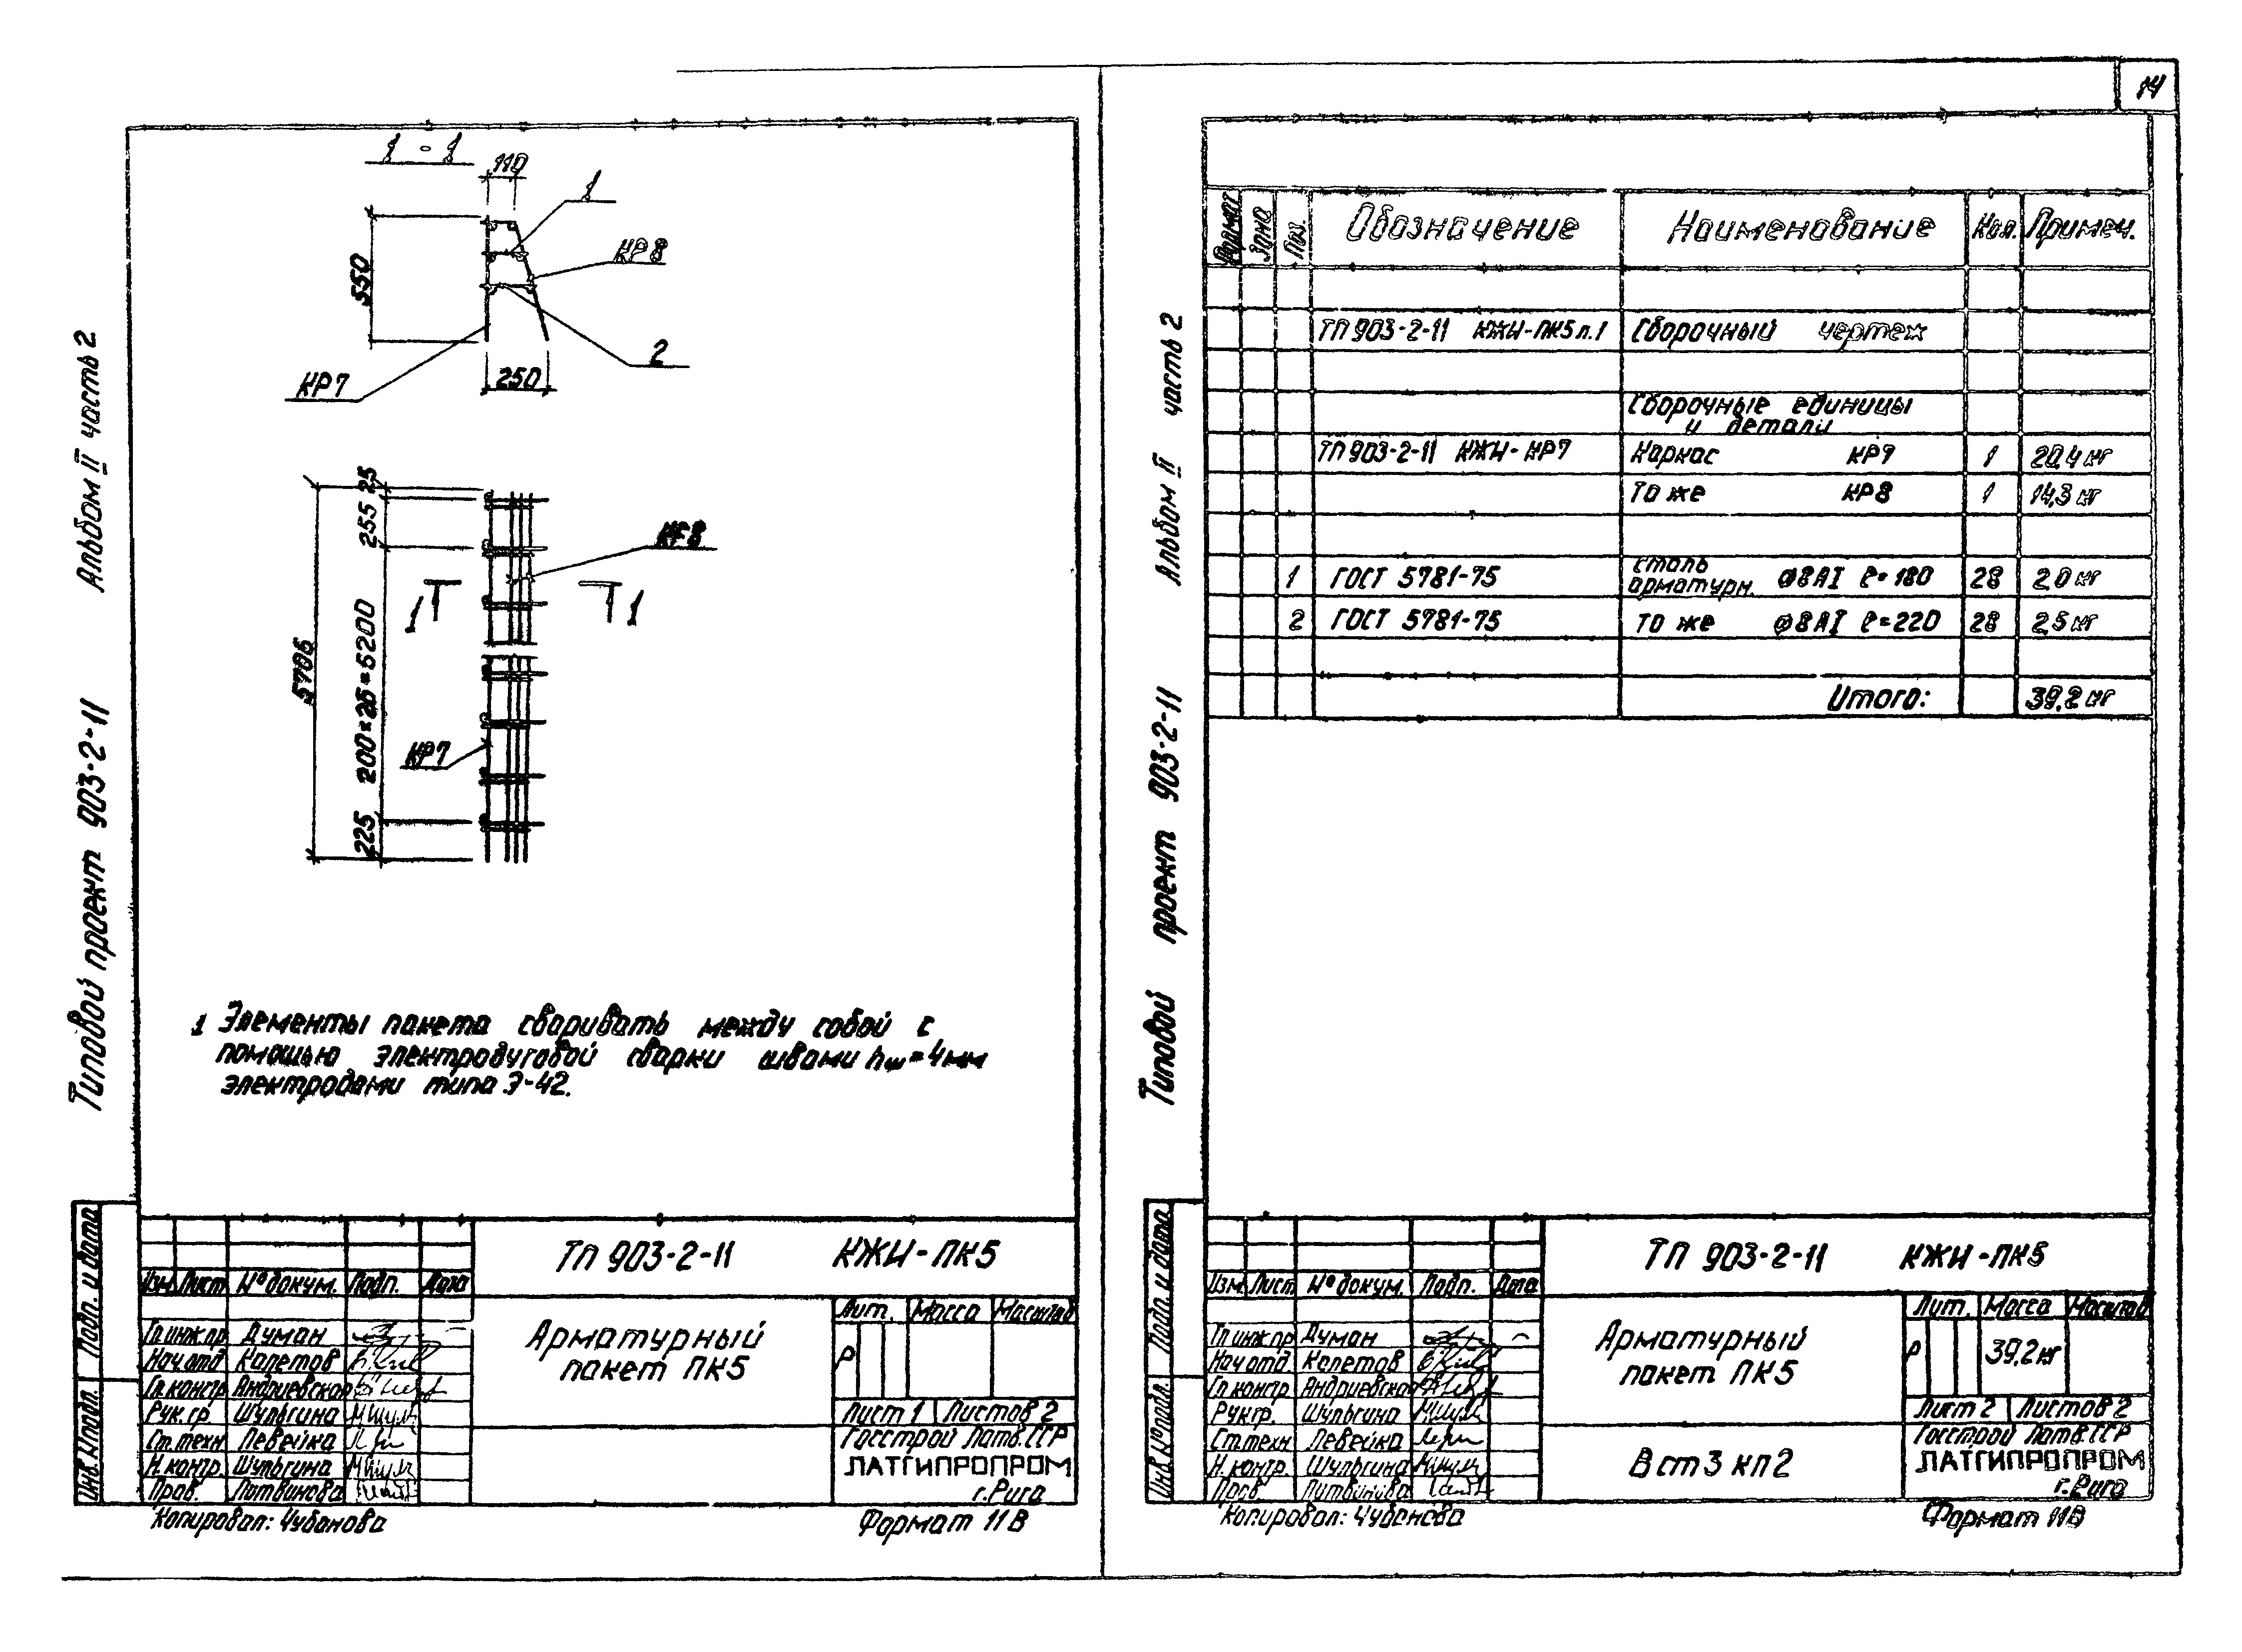 14
Типовой проект 903-2-11 Альбом II часть 2
1 - 1
110
1
550
КР8
2
КР7
250
25
255
КР8
1 1
5706
200×26=5200
КР7
225
1 Элементы пакета сваривать между собой с
помощью электродуговой сварки швами hш=4мм
электродами типа Э-42.
Подп. и дата
Инв.№подл.
ТП 903-2-11 КЖИ-ПК5
Изм. Лист № докум. Подп. Дата
Гл.инж.пр Думан
Нач.отд Капетов
Гл.констр Андриевская
Рук.гр. Шульгина
Ст.техн Левейка
Н.контр. Шульгина
Пров. Литвинова
Арматурный
пакет ПК5
Лит. Масса Масштаб
Р
Лист 1 Листов 2
Госстрой Латв.ССР
ЛАТГИПРОПРОМ
г.Рига
Копировал: Чубанова Формат 11В
Типовой проект 903-2-11 Альбом II часть 2
Формат Зона Поз. Обозначение Наименование Кол. Примеч.
ТП 903-2-11 КЖИ-ПК5 л.1 Сборочный чертеж
Сборочные единицы
и детали
ТП 903-2-11 КЖИ-КР7 Каркас КР7 1 20,4 кг
То же КР8 1 14,3 кг
1 ГОСТ 5781-75 сталь арматурн. Ø8АI ℓ=180 28 2,0 кг
2 ГОСТ 5781-75 то же Ø8АI ℓ=220 28 2,5 кг
Итого: 39,2 кг
Подп. и дата
Инв.№подл.
ТП 903-2-11 КЖИ-ПК5
Изм. Лист № докум. Подп. Дата
Гл.инж.пр Думан
Нач.отд Капетов
Гл.констр Андриевская
Рук.гр. Шульгина
Ст.техн Левейка
Н.контр. Шульгина
Пров. Литвинова
Арматурный
пакет ПК5
Лит. Масса Масштаб
Р 39,2 кг
Лист 2 Листов 2
В ст3 кп2
Госстрой Латв.ССР
ЛАТГИПРОПРОМ
г.Рига
Копировал: Чубанова Формат 11В